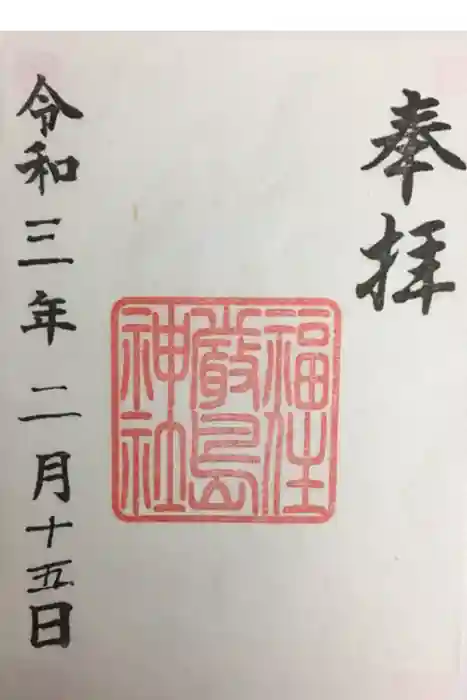 奉拝
福住
厳島
神社
令和三年二月十五日